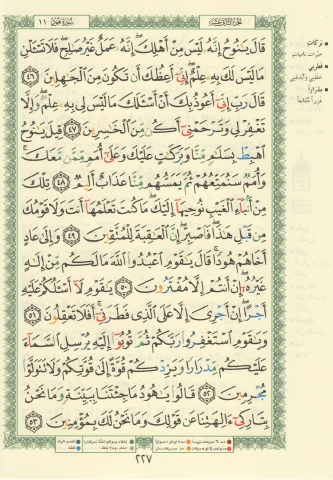 سورة هود ١١
الجزء الثاني عشر
قَالَ يَٰنُوحُ إِنَّهُۥ لَيْسَ مِنْ أَهْلِكَ إِنَّهُۥ عَمَلٌ غَيْرُ صَٰلِحٍ فَلَا تَسْـَٔلْنِ
مَا لَيْسَ لَكَ بِهِۦ عِلْمٌ إِنِّىٓ أَعِظُكَ أَن تَكُونَ مِنَ ٱلْجَٰهِلِينَ ٤٦
قَالَ رَبِّ إِنِّىٓ أَعُوذُ بِكَ أَنْ أَسْـَٔلَكَ مَا لَيْسَ لِى بِهِۦ عِلْمٌ وَإِلَّا
تَغْفِرْ لِى وَتَرْحَمْنِىٓ أَكُن مِّنَ ٱلْخَٰسِرِينَ ٤٧ قِيلَ يَٰنُوحُ
ٱهْبِطْ بِسَلَٰمٍ مِّنَّا وَبَرَكَٰتٍ عَلَيْكَ وَعَلَىٰٓ أُمَمٍ مِّمَّن مَّعَكَ
وَأُمَمٌ سَنُمَتِّعُهُمْ ثُمَّ يَمَسُّهُم مِّنَّا عَذَابٌ أَلِيمٌ ٤٨ تِلْكَ
مِنْ أَنۢبَآءِ ٱلْغَيْبِ نُوحِيهَآ إِلَيْكَ مَا كُنتَ تَعْلَمُهَآ أَنتَ وَلَا قَوْمُكَ
مِن قَبْلِ هَٰذَا فَٱصْبِرْ إِنَّ ٱلْعَٰقِبَةَ لِلْمُتَّقِينَ ٤٩ وَإِلَىٰ عَادٍ
أَخَاهُمْ هُودًا قَالَ يَٰقَوْمِ ٱعْبُدُوا۟ ٱللَّهَ مَا لَكُم مِّنْ إِلَٰهٍ
غَيْرُهُۥٓ إِنْ أَنتُمْ إِلَّا مُفْتَرُونَ ٥٠ يَٰقَوْمِ لَآ أَسْـَٔلُكُمْ عَلَيْهِ
أَجْرًا إِنْ أَجْرِىَ إِلَّا عَلَى ٱلَّذِى فَطَرَنِىٓ أَفَلَا تَعْقِلُونَ ٥١
وَيَٰقَوْمِ ٱسْتَغْفِرُوا۟ رَبَّكُمْ ثُمَّ تُوبُوٓا۟ إِلَيْهِ يُرْسِلِ ٱلسَّمَآءَ
عَلَيْكُم مِّدْرَارًا وَيَزِدْكُمْ قُوَّةً إِلَىٰ قُوَّتِكُمْ وَلَا تَتَوَلَّوْا۟
مُجْرِمِينَ ٥٢ قَالُوا۟ يَٰهُودُ مَا جِئْتَنَا بِبَيِّنَةٍ وَمَا نَحْنُ
بِتَارِكِىٓ ءَالِهَتِنَا عَن قَوْلِكَ وَمَا نَحْنُ لَكَ بِمُؤْمِنِينَ ٥٣
بركات
خيرات ناميات
فطرني
خلقني وأبدعني
مدراراً
غزيراً متتابعاً
٢٢٧